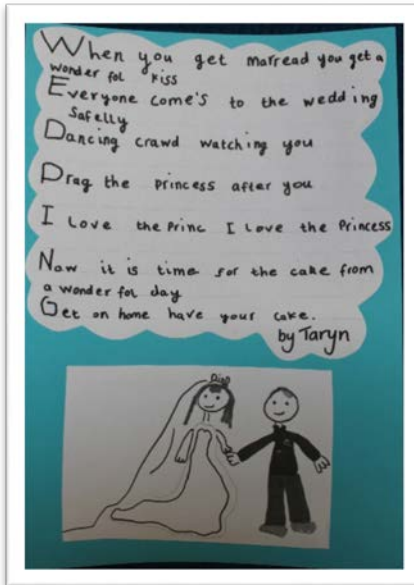 When you get marread you get a
wonder fol kiss
Everyone come's to the wedding
Safelly
Dancing crawd watching you
Drag the princess after you
I Love the Princ I Love the Princess
Now it is time for the cake from
a wonder fol day
Get on home have your cake.
by Taryn